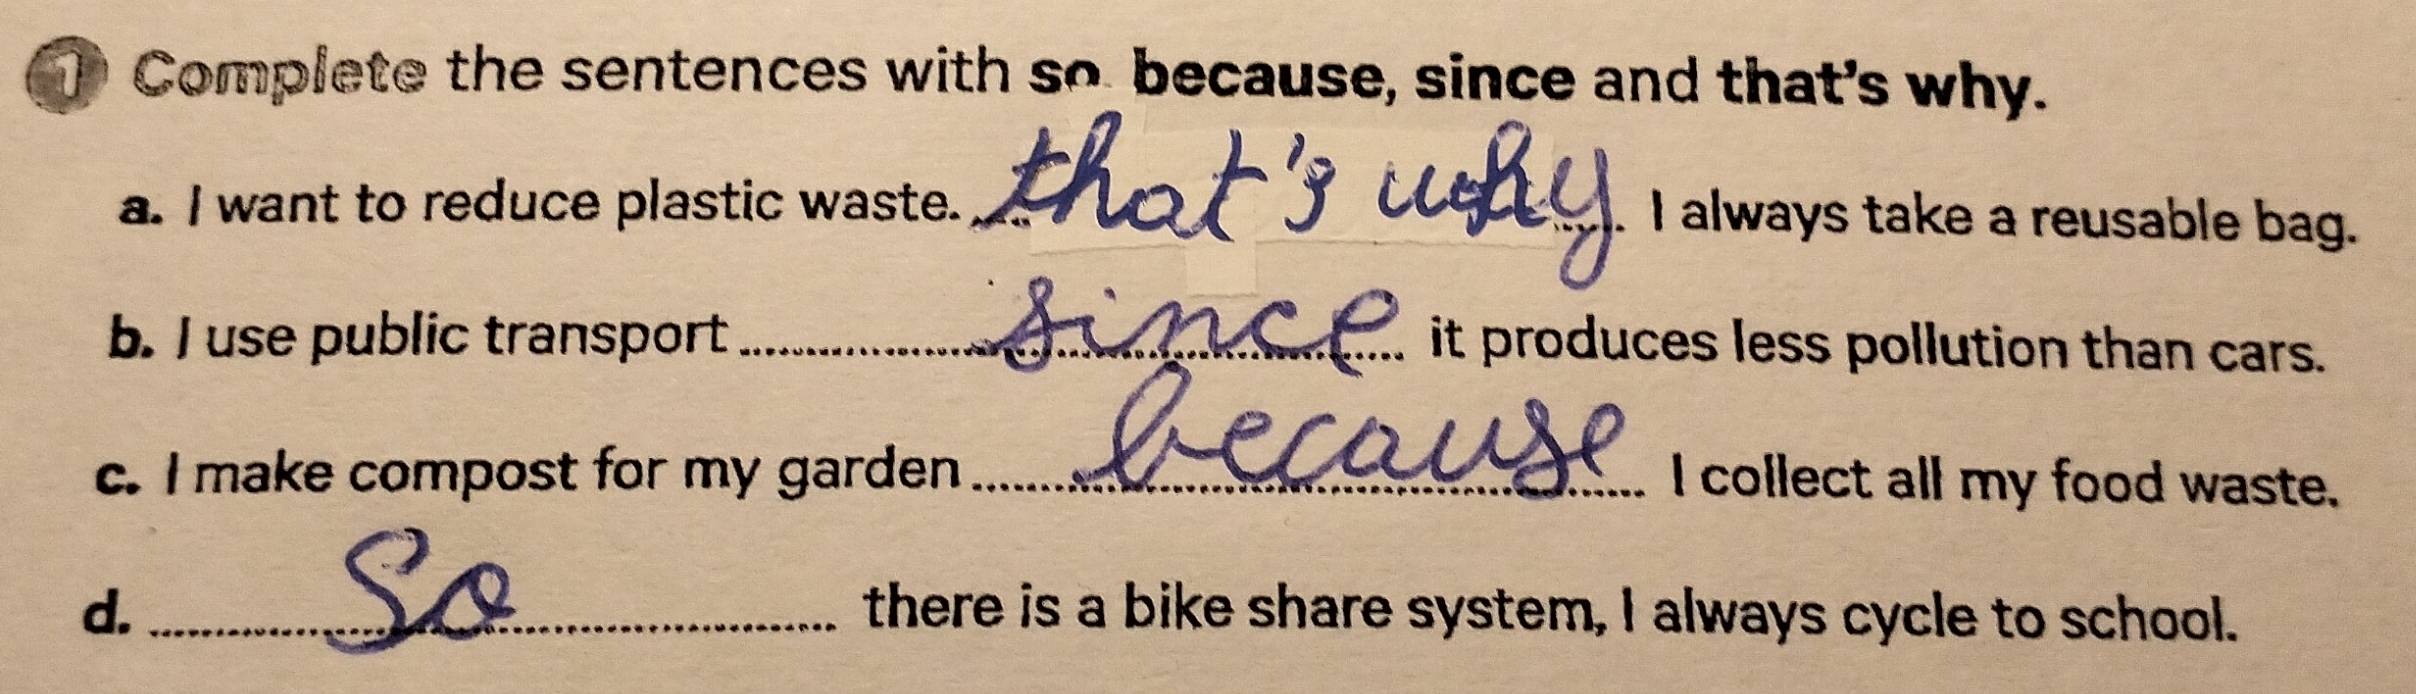 1 Complete the sentences with so because, since and that's why.
a. I want to reduce plastic waste. that's why I always take a reusable bag.
b. I use public transport since it produces less pollution than cars.
c. I make compost for my garden because I collect all my food waste.
d. So there is a bike share system, I always cycle to school.